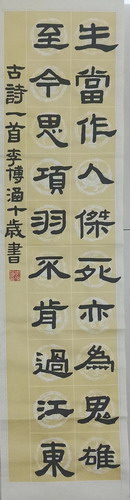 生當作人傑死亦為鬼雄
至今思項羽不肯過江東
古詩一首李博涵十歲書